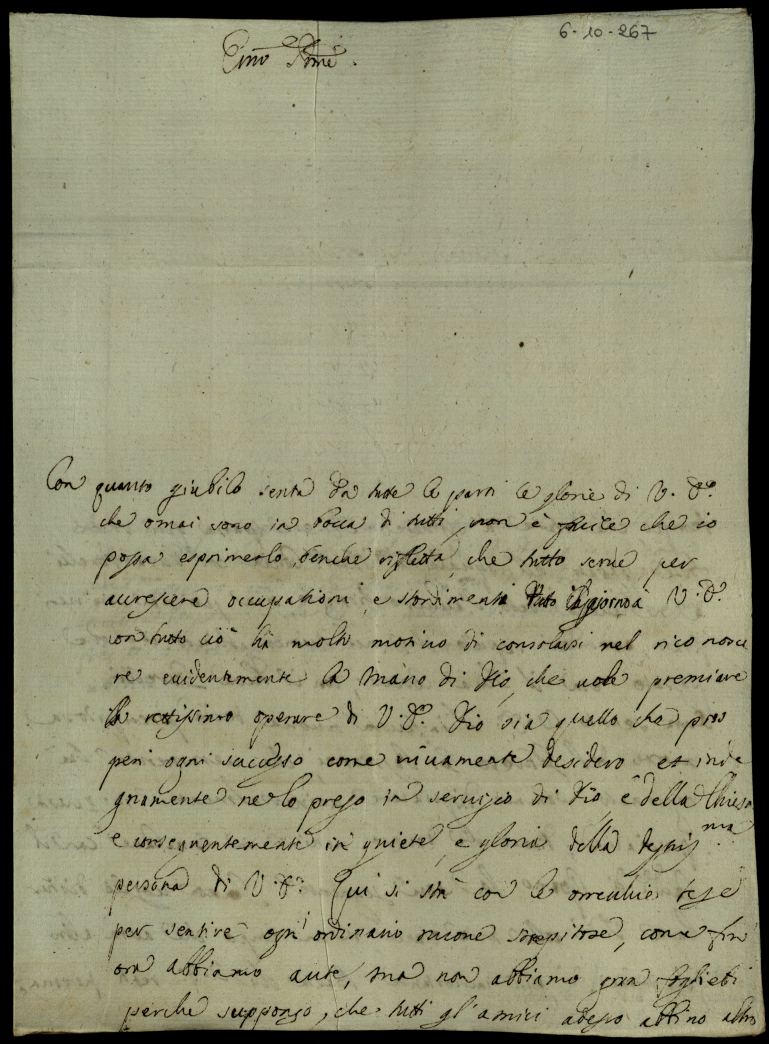 6-10-267
Emo Sig.re
Con quanto giubilo senta da tutte le parti le glorie di V. E.
che omai sono in bocca di tutti, non è facile che io
possa esprimerlo, benche rifletta, che tutto serve per
accrescere occupationi, e stordimenti tutto il giorno à V. E.
con tutto ciò hà molto motivo di consolarsi nel riconosce
re evidentemente la mano di Dio, che vole premiare
il rettissimo operare di V. E. Dio sia quello che pros
peri ogni successo come vivamente desidero et inde
gnamente ne lo prego in servigio di Dio e della Chiesa
e conseguentemente in quiete, e gloria della degniss.ma
persona di V. E. Qui si stà con le orrecchie tese
per sentire ogn'ordinario nuove strepitose, come fin
ora abbiamo aute, ma non abbiamo gran foglietti
perche suppongo, che tutti gl'amici adesso abbino altro